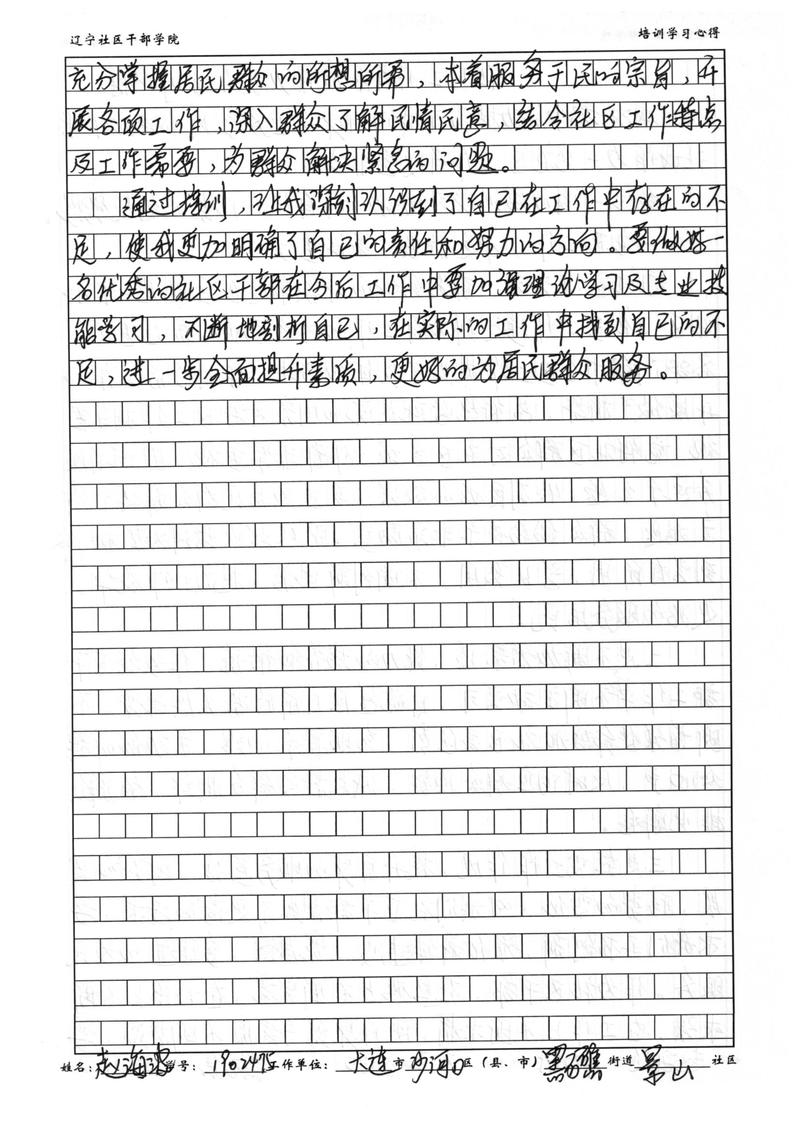 辽宁社区干部学院 培训学习心得
充分掌握居民群众的所想所需，本着服务于民的宗旨，开
展各项工作，深入群众了解民情民意，结合社区工作特点
及工作需要，为群众解决紧急的问题。
通过培训，让我深刻认识到了自己在工作中存在的不
足，使我更加明确了自己的责任和努力的方向。要做好一
名优秀的社区干部在今后工作中要加强理论学习及专业技
能学习，不断地剖析自己，在实际的工作中找到自己的不
足，进一步全面提升素质，更好的为居民群众服务。
姓名：赵海 学号：190247 工作单位：大连市沙河口区（县、市）黑石礁街道景山社区